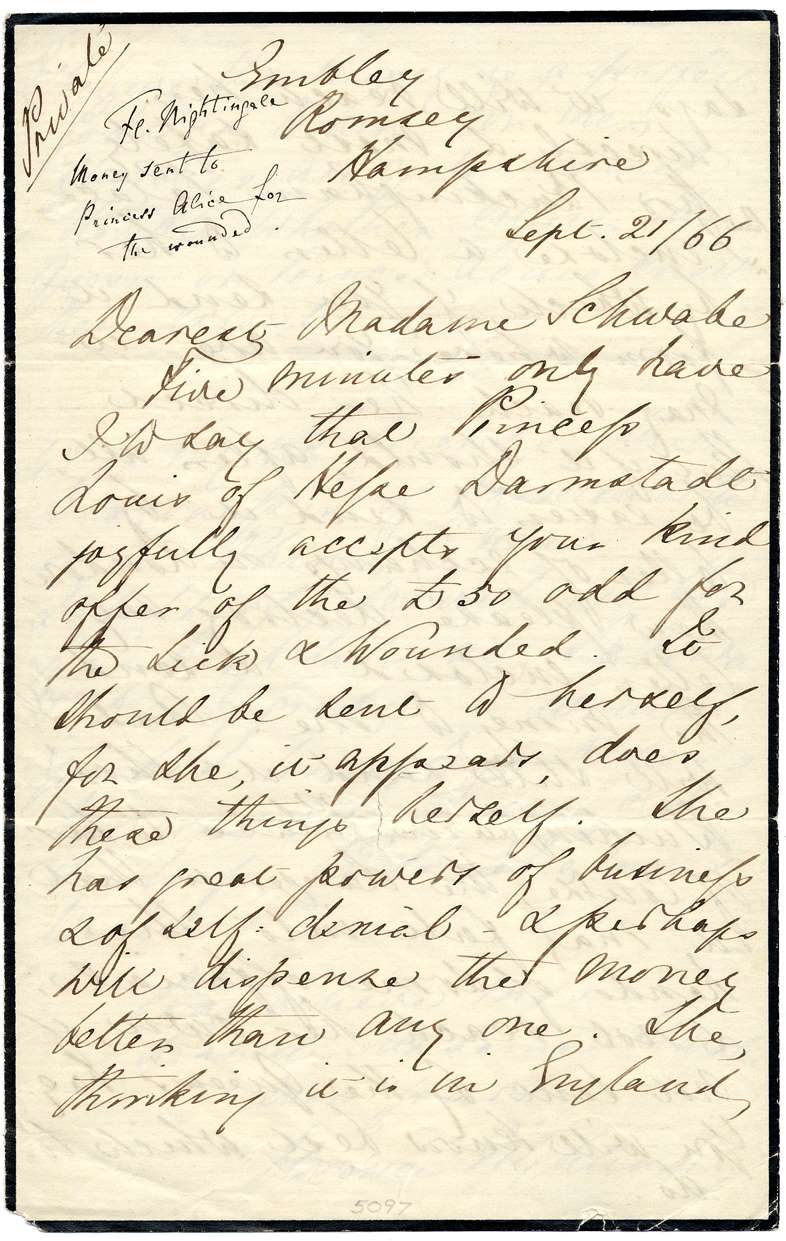 Private
Embley
Fl. Nightingale
Romsey
Money sent to
Hampshire
Princess Alice for
the wounded.
Sept. 21/66
Dearest Madame Schwabe
Five minutes only have
I to say that Princess
Louis of Hesse Darmstadt
joyfully accepts your kind
offer of the £50 odd for
the Sick & Wounded. It
should be sent to herself,
for she, it appears, does
these things herself. She
has great powers of business
& of self-denial - & perhaps
will dispense the money
better than any one. She,
thinking it is in England,
5097